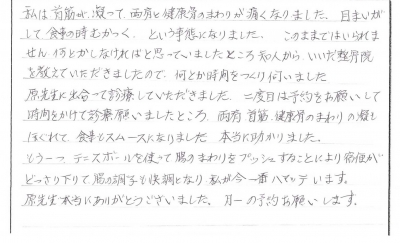 私は首筋が凝って両肩と健康骨のまわりが痛くなりました。目まいが
して食事の時むかつく、という事態になりました。このままではいられま
せん。何とかしなければと思っていましたところ知人から、いいだ整骨院
を教えていただきましたので、何とか時間をつくり伺いました
原先生に出会って診療していただきました。二度目は予約をお願いして
時間をかけて診療願いましたところ、両肩、首筋、健康骨のまわりの凝も
ほぐれて食事もスムースになりました 本当に助かりました。
もう一つテニスボールを使って腸のまわりをプッシュすることにより宿便が
どっさり下りて腸の調子も快調となり、私が今一番ハマッテいます。
原先生本当にありがとうございました。月一の予約お願いします。